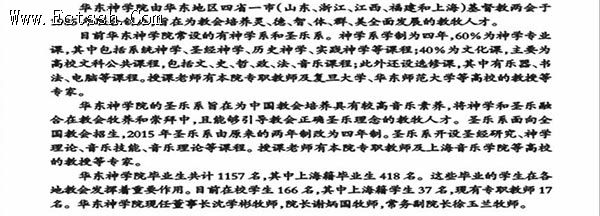 华东神学院由华东地区四省一市(山东、浙江、江西、福建和上海)基督教两会于
在为教会培养灵、德、智、体、群、美全面发展的教牧人才。
目前华东神学院常设的有神学系和圣乐系。神学系学制为四年,60%为神学专业
课,其中包括系统神学、圣经神学、历史神学、实践神学等课程;40%为文化课,主要为
高校文科公共课程,包括文、史、哲、政、法、音乐课程;此外还设选修课,其中有乐器、书
法、电脑等课程。授课老师有本院专职教师及复旦大学、华东师范大学等高校的教授等
专家。
华东神学院的圣乐系旨在为中国教会培养具有较高音乐素养,将神学和圣乐融
合在教会牧养和崇拜中,且能够引导教会正确圣乐理念的教牧人才。圣乐系面向全
国教会招生,2015年圣乐系由原来的两年制改为四年制。圣乐系开设圣经研究、神学
理论、音乐技能、音乐理论等课程。授课老师有本院专职教师及上海音乐学院等高校
的教授等专家。
华东神学院毕业生共计1157名,其中上海籍毕业生418名。这些毕业的学生在各
地教会发挥着重要作用。目前在校学生166名,其中上海籍学生37名,现有专职教师17
名。华东神学院现任董事长沈学彬牧师,院长谢炳国牧师,常务副院长徐玉兰牧师。